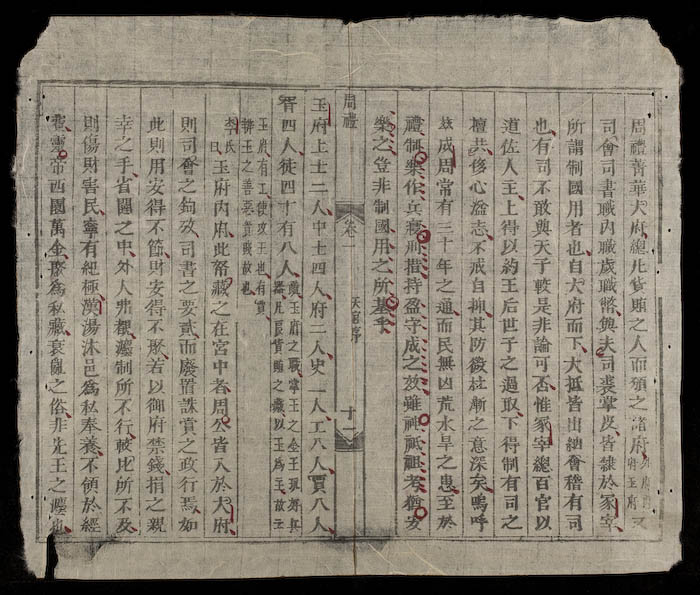 周禮菁華大府總凡貨賄之人而頒之諸府外府玉府又
司會司書職內職歲職幣與夫司裘掌皮皆隸於冢宰
所謂制國用者也自大府而下大抵皆出納會稽有司
也有司不敢與天子較是非論可否惟冢宰總百官以
道佐人王上得以約王后世子之過取下得制有司之
檀共侈心溢志不戒自抑其防微杜漸之意深矣嗚呼
成周常有三十年之通而民無凶荒水旱之患至於
禮制樂作兵寢刑措持盈守成之效雖神祗祖考猶安
樂之豈非制國用之所基乎
周禮 卷一 天官序 十一
玉府上士二人中士四人府二人史二人工八人賈八人
胥四人徒四十有八人
玉府有工使攻玉也有賈
辨玉之善惡貴賤故也
李氏曰玉府內府此帑藏之在宮中者周公皆入於大府
則司會之鉤攷司書之要貳而廢置誅賞之政行焉如
此則用安得不節財安得不聚若以御府禁錢捐之親
幸之手省闥之中外人弗覩灋制所不行較比所不及
則傷財害民寧有紀極漢湯沐邑為私奉養不領於經
費靈帝西園萬金廢為私藏衰亂之俗非先王之灋也